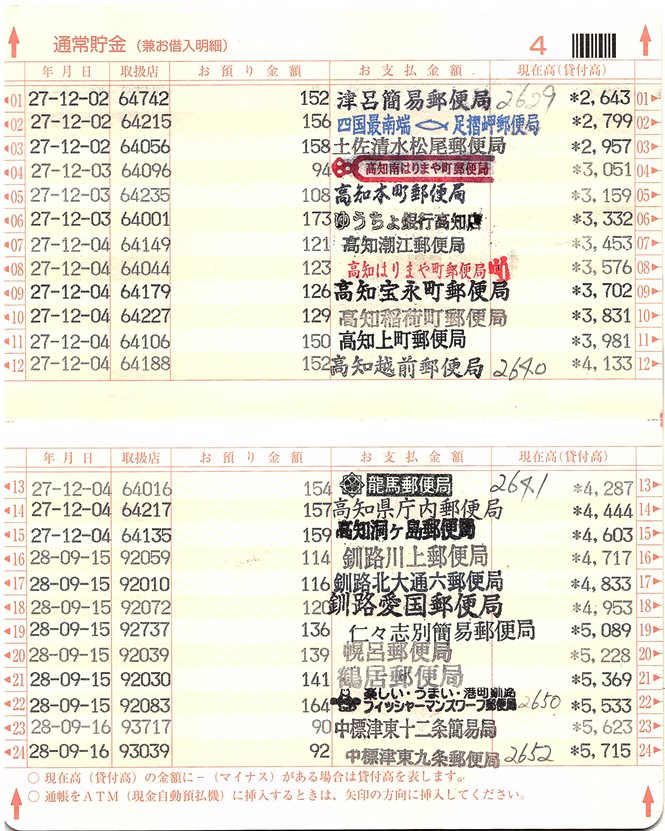 通常貯金(兼お借入明細) 4
年月日 取扱店 お預り金額 お支払金額 現在高(貸付高)
01 27-12-02 64742 152 津呂簡易郵便局 2629 *2,643 01
02 27-12-02 64215 156 四国最南端 足摺岬郵便局 *2,799 02
03 27-12-02 64056 158 土佐清水松尾郵便局 *2,957 03
04 27-12-03 64096 94 高知南はりまや町郵便局 *3,051 04
05 27-12-03 64235 108 高知本町郵便局 *3,159 05
06 27-12-03 64001 173 ゆうちょ銀行高知店 *3,332 06
07 27-12-04 64149 121 高知潮江郵便局 *3,453 07
08 27-12-04 64044 123 高知はりまや町郵便局 *3,576 08
09 27-12-04 64179 126 高知宝永町郵便局 *3,702 09
10 27-12-04 64227 129 高知稲荷町郵便局 *3,831 10
11 27-12-04 64106 150 高知上町郵便局 *3,981 11
12 27-12-04 64188 152 高知越前郵便局 2640 *4,133 12
年月日 取扱店 お預り金額 お支払金額 現在高(貸付高)
13 27-12-04 64016 154 龍馬郵便局 2641 *4,287 13
14 27-12-04 64217 157 高知県庁内郵便局 *4,444 14
15 27-12-04 64135 159 高知洞ヶ島郵便局 *4,603 15
16 28-09-15 92059 114 釧路川上郵便局 *4,717 16
17 28-09-15 92010 116 釧路北大通六郵便局 *4,833 17
18 28-09-15 92072 120 釧路愛国郵便局 *4,953 18
19 28-09-15 92737 136 仁々志別簡易郵便局 *5,089 19
20 28-09-15 92039 139 幌呂郵便局 *5,228 20
21 28-09-15 92030 141 鶴居郵便局 *5,369 21
22 28-09-15 92083 164 楽しい・うまい・港町釧路 フィッシャーマンズワーフ郵便局 2650 *5,533 22
23 28-09-16 93717 90 中標津東十二条簡易局 *5,623 23
24 28-09-16 93039 92 中標津東九条郵便局 2652 *5,715 24
○ 現在高(貸付高)の金額に−(マイナス)がある場合は貸付高を表します。
○ 通帳をATM(現金自動預払機)に挿入するときは、矢印の方向に挿入してください。